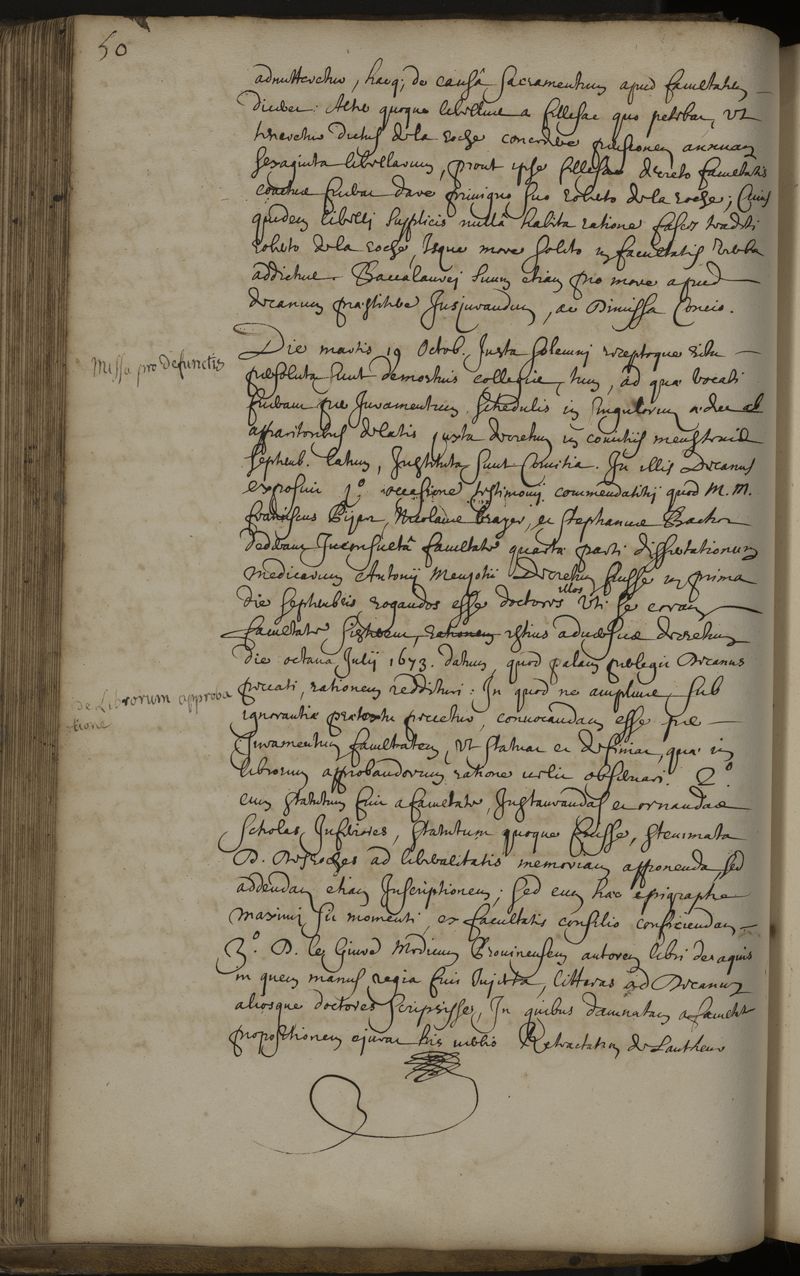 50
admitteretur, hacq; de causâ sacramentum apud facultatem
diceret. Alter quoque libellus a fillesac quo petebat, ut
teneretur dictus de la roche concedere pensionem annuam
sexaginta libellarum, prout ipse fillesac decreto facultatis
coactus fuerat dare privigno suo roberto de la roche; Cuius
quidem libelli supplicis nulla habita ratione fasces traditi
roberto de la roche, Isque more solito in facultatis verba
addictus. Baccalaurei suum etiam pro more apud
decanum praestitere Jusjurandum, ac Dimissa Concio.
Missa pro Defunctis
Die martis 19 Octob. Juxta solemnj receptoque ritu
persoluta sunt demortuis collegis, tum, ad quae vocati
fuerant per Juramentum schedulis in singulorum aedes ab
apparitoribus delatis juxta decretum in comitiis menstruis
septemb. latum, Instituta sunt Comitia. In illis Decanus
exposuit 1.º occasione testimonij commendatitij quod M. M.
franciscus Pijart, Nicolaus Brayer, et Stephanus Bachot
dederant Inconsultâ facultate quartae parti dissertationum
medicarum Antonij Menjotii Decretum fuisse in prima
die septembris, rogandos esse doctores illos uti se coram
facultate sisterent, rationem istius adversus decretum
die octava Julij 1673. datum, quod palam perlegit Decanus
de Librorum approba
tione
peccati, rationem reddituri: In quod ne amplius, sub
ignorantiae pretextu peccetur, convocandam esse per
Juramentum facultatem, ut statuat et definiat, quae in
librorum approbandorum ratione velit observari. 2.º
cum statutum fuit a facultate, Instaurandas et ornandas
scholas Inferiores, statutum quoque fuisse, stemmata
D. Desroches ad liberalitatis memoriam apponenda, sed
addendam etiam Inscriptionem; sed cum haec epigraphe
maximi sit momenti, ex facultatis consilio conficiendam
3.º D. le Givre Medicum Provinensem autorem libri de aquis
in quem manus regia fuit Injecta, litteras ad Decanum
aliosque doctores scripsisse, In quibus damnatam a facultate
propositionem ejurat his verbis Retractatum de Lautheur